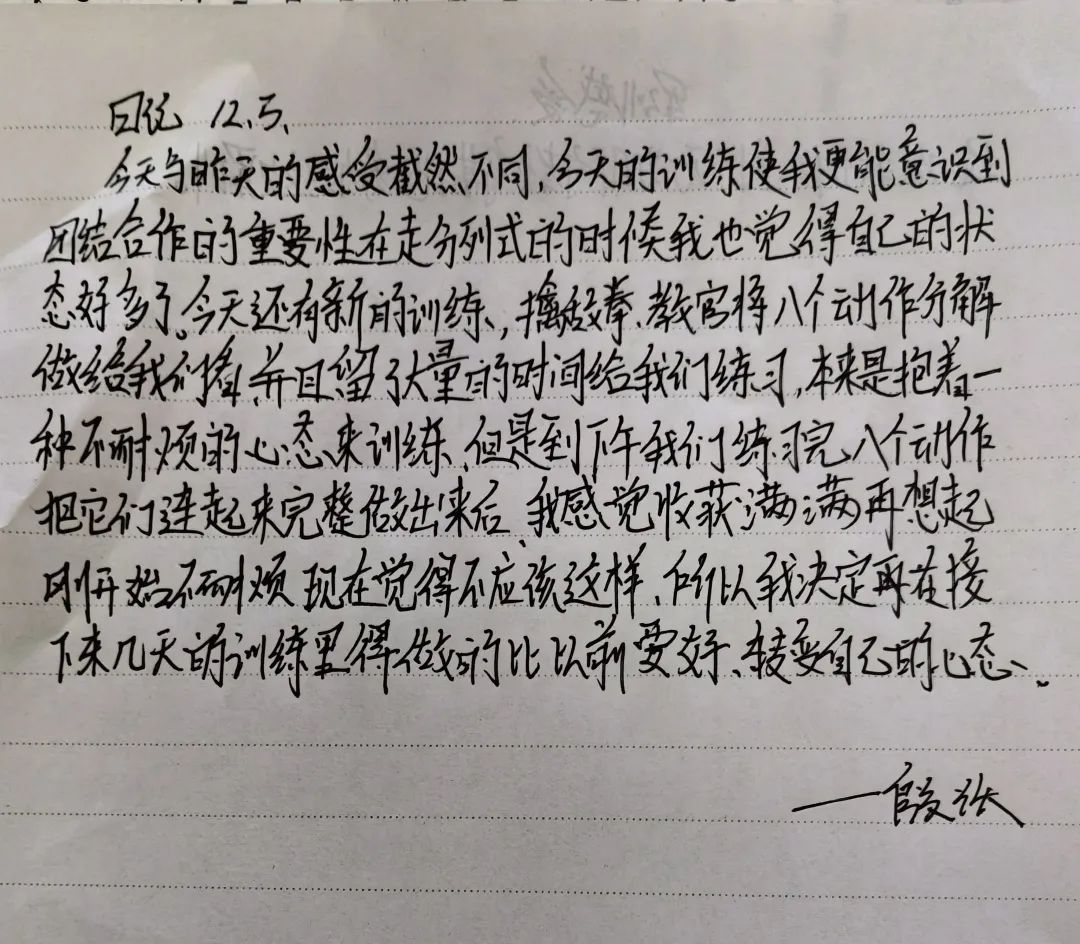 日记 12.5.
今天与昨天的感受截然不同,今天的训练使我更能意识到
团结合作的重要性在走分列式的时候我也觉得自己的状
态好多了。今天还有新的训练、,擒敌拳、教官将八个动作分解
做给我们看,并且留了大量的时间给我们练习,本来是抱着一
种不耐烦的心态来训练、但是到下午我们练习完八个动作
把它们连起来完整做出来后、我感觉收获满满再想起
刚开始不耐烦现在觉得不应该这样、所以我决定再在接
下来几天的训练里得做的比以前要好、转变自己的心态、.
——殷